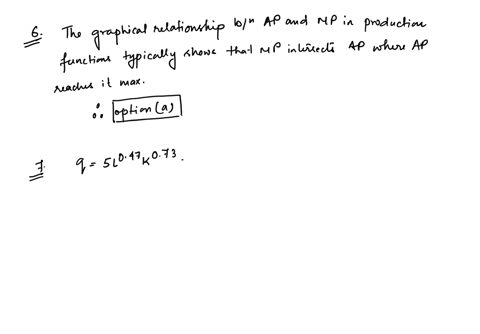 6. The graphical relationship b/n AP and MP in production
functions typically shows that MP intersects AP where AP
reaches it max.
∴ option (a)
7. q = 5L^0.47 K^0.73.